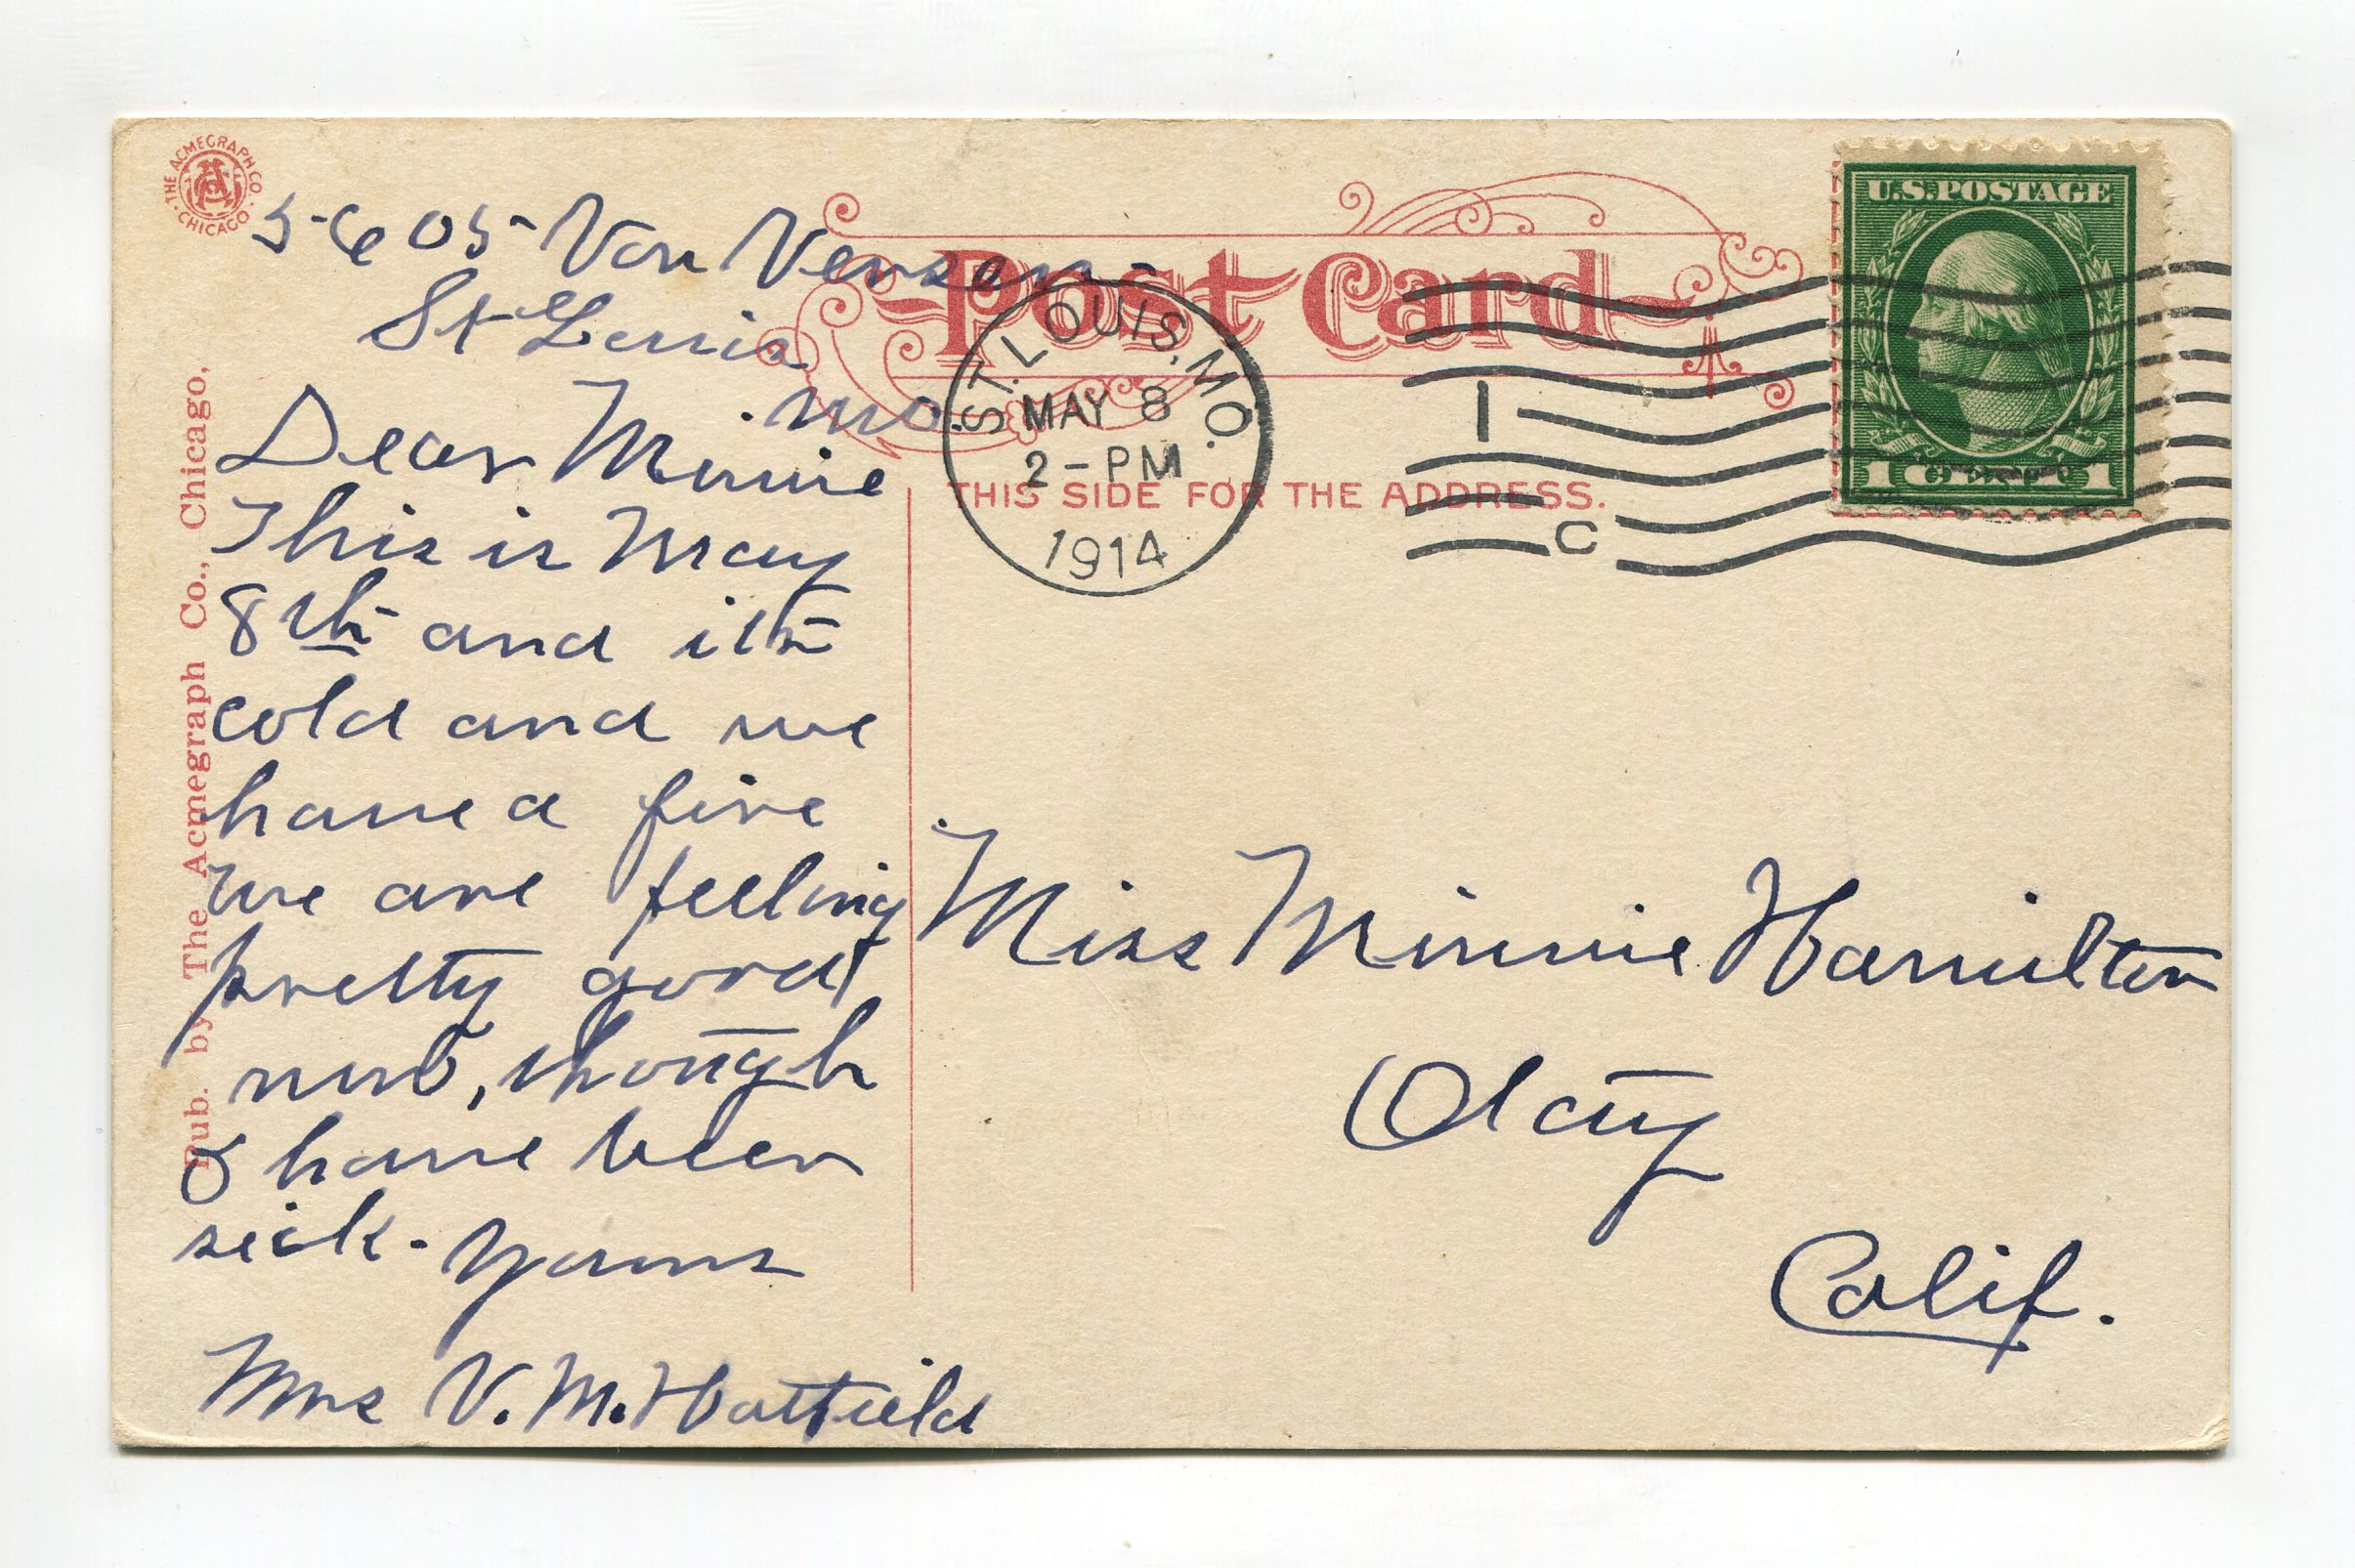 THE ACMEGRAPH CO. CHICAGO.
5605 Von Versen
St Louis
Mo
Dear Minnie
This is May
8th and its
cold and we
have a fire
We are feeling
pretty good
now, though
I have been
sick. Yours
Mrs V. M. Hatfield
Pub. by The Acmegraph Co., Chicago,
Post Card
ST. LOUIS, MO.
MAY 8
2-PM
1914
1
C
THIS SIDE FOR THE ADDRESS.
U.S. POSTAGE
1 1
Miss Minnie Hamilton
Otay
Calif.